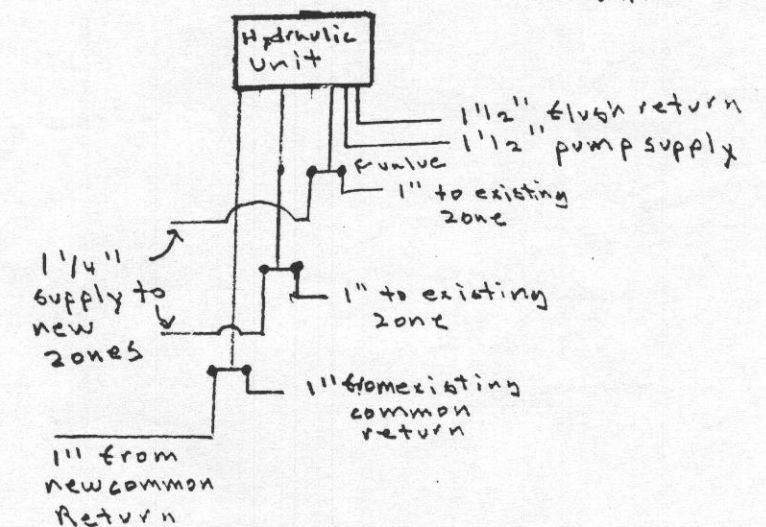 Hydraulic
Unit
1 1/2" flush return
1 1/2" pump supply
valve
1" to existing
zone
1 1/4"
supply to
new
zones
1" to existing
zone
1" from existing
common
return
1" from
new common
Return